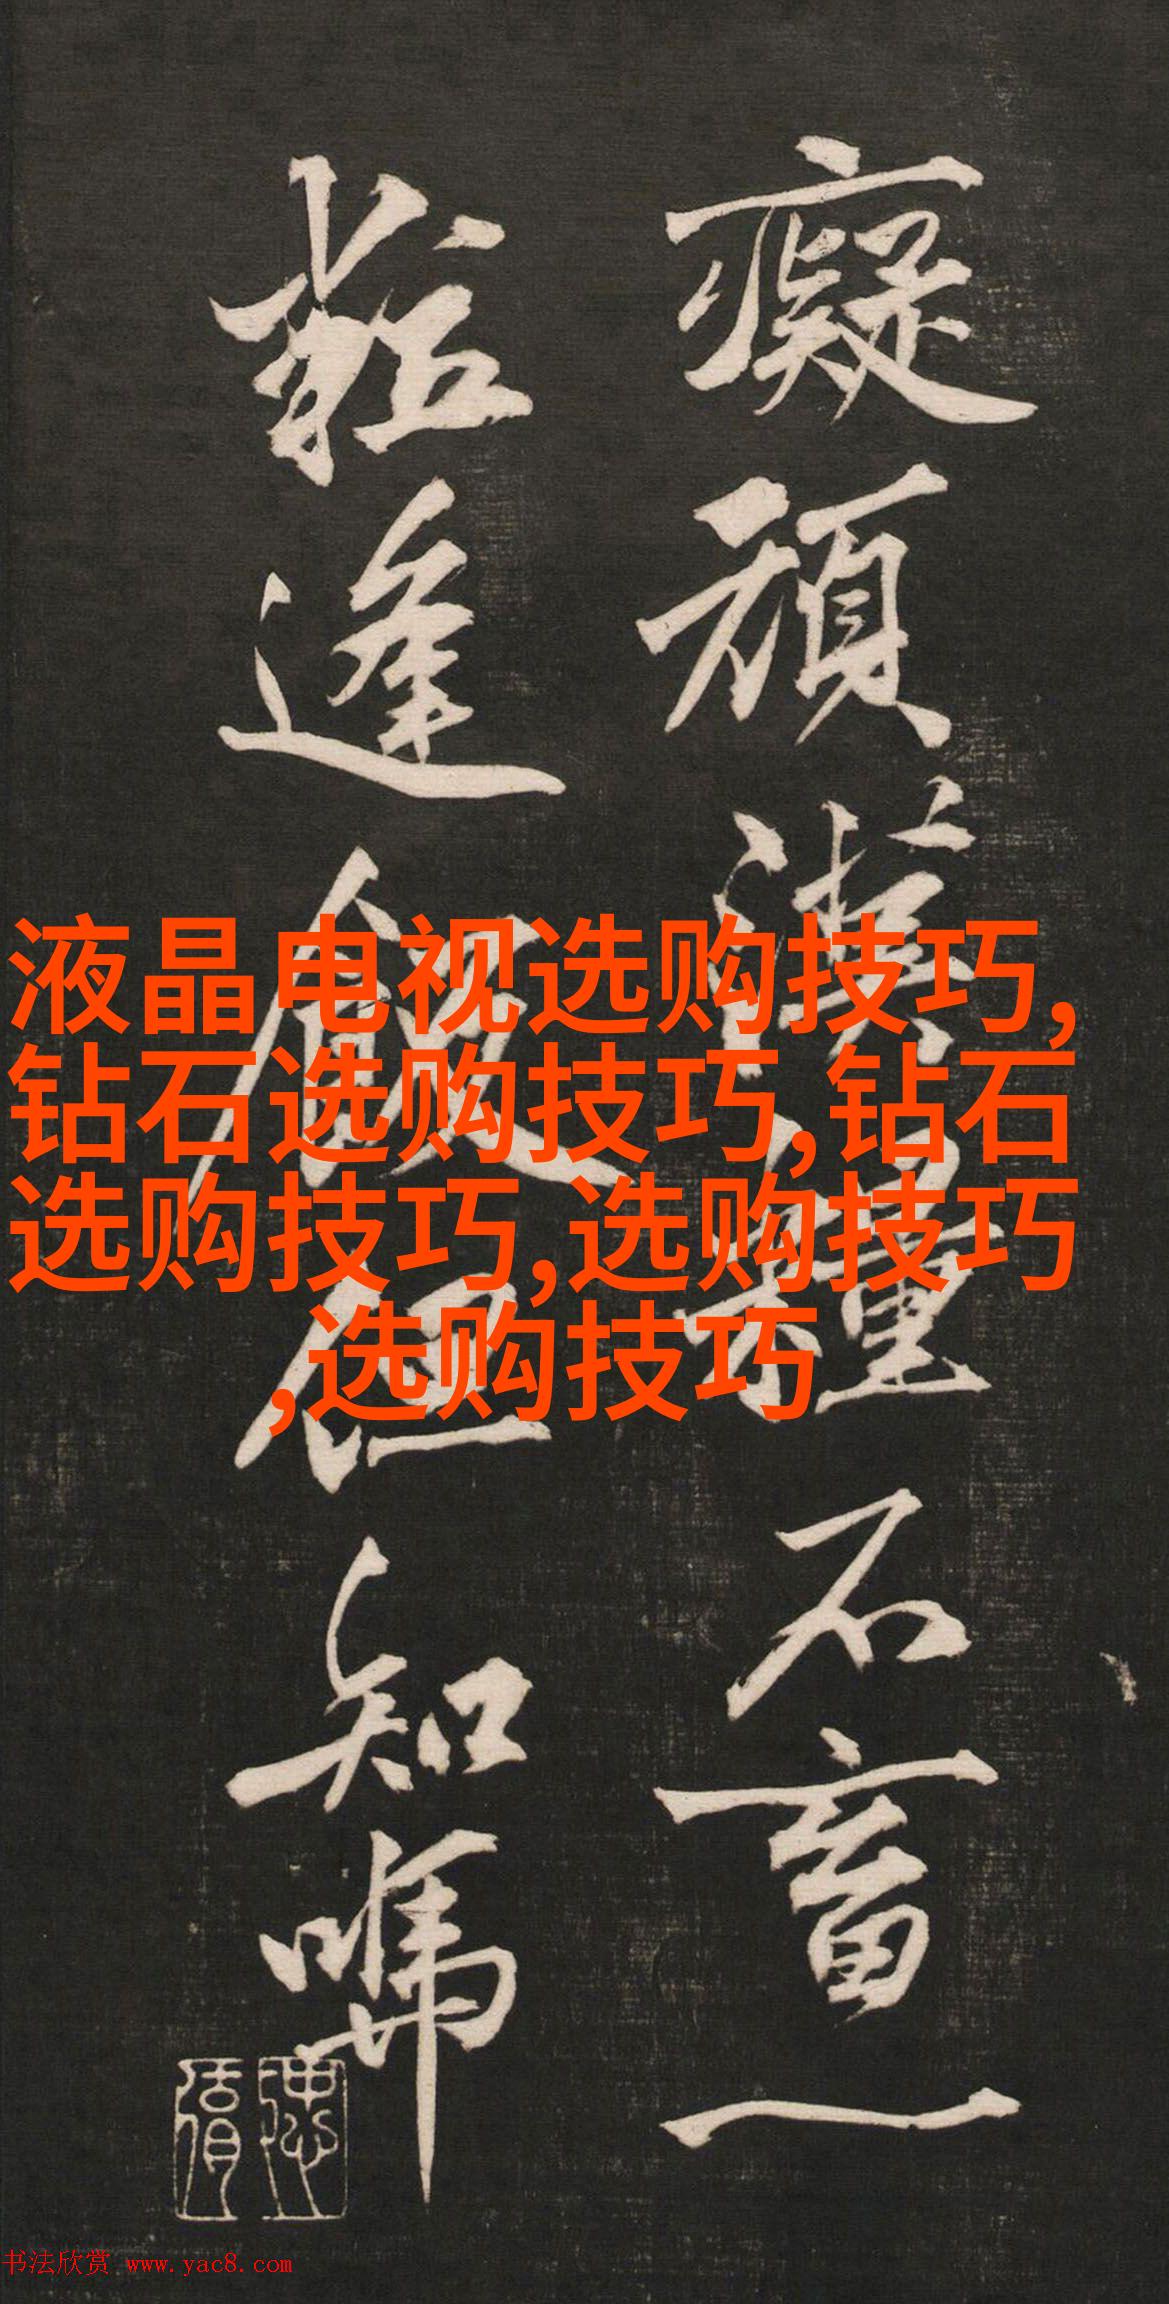 癡頑漢種石畜一
逢飯但知
液晶电视选购技巧,
钻石选购技巧,钻石
选购技巧,选购技巧
,选购技巧
书法欣赏 www.yac8.com